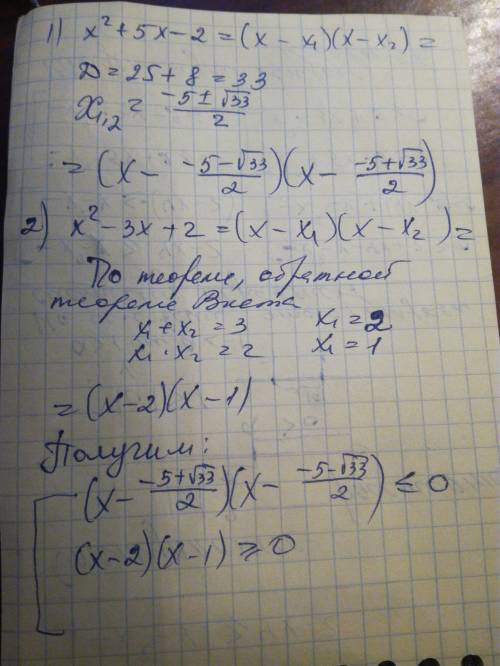 1) x² + 5x − 2 = (x − x₁)(x − x₂) =
D = 25 + 8 = 33
x₁,₂ = (−5 ± √33)/2
= (x − (−5 − √33)/2)(x − (−5 + √33)/2)
2) x² − 3x + 2 = (x − x₁)(x − x₂) =
По теореме, обратной
теореме Виета
x₁ + x₂ = 3 x₁ = 2
x₁ · x₂ = 2 x₁ = 1
= (x − 2)(x − 1)
Получим:
[ (x − (−5 + √33)/2)(x − (−5 − √33)/2) ≤ 0
(x − 2)(x − 1) ≥ 0